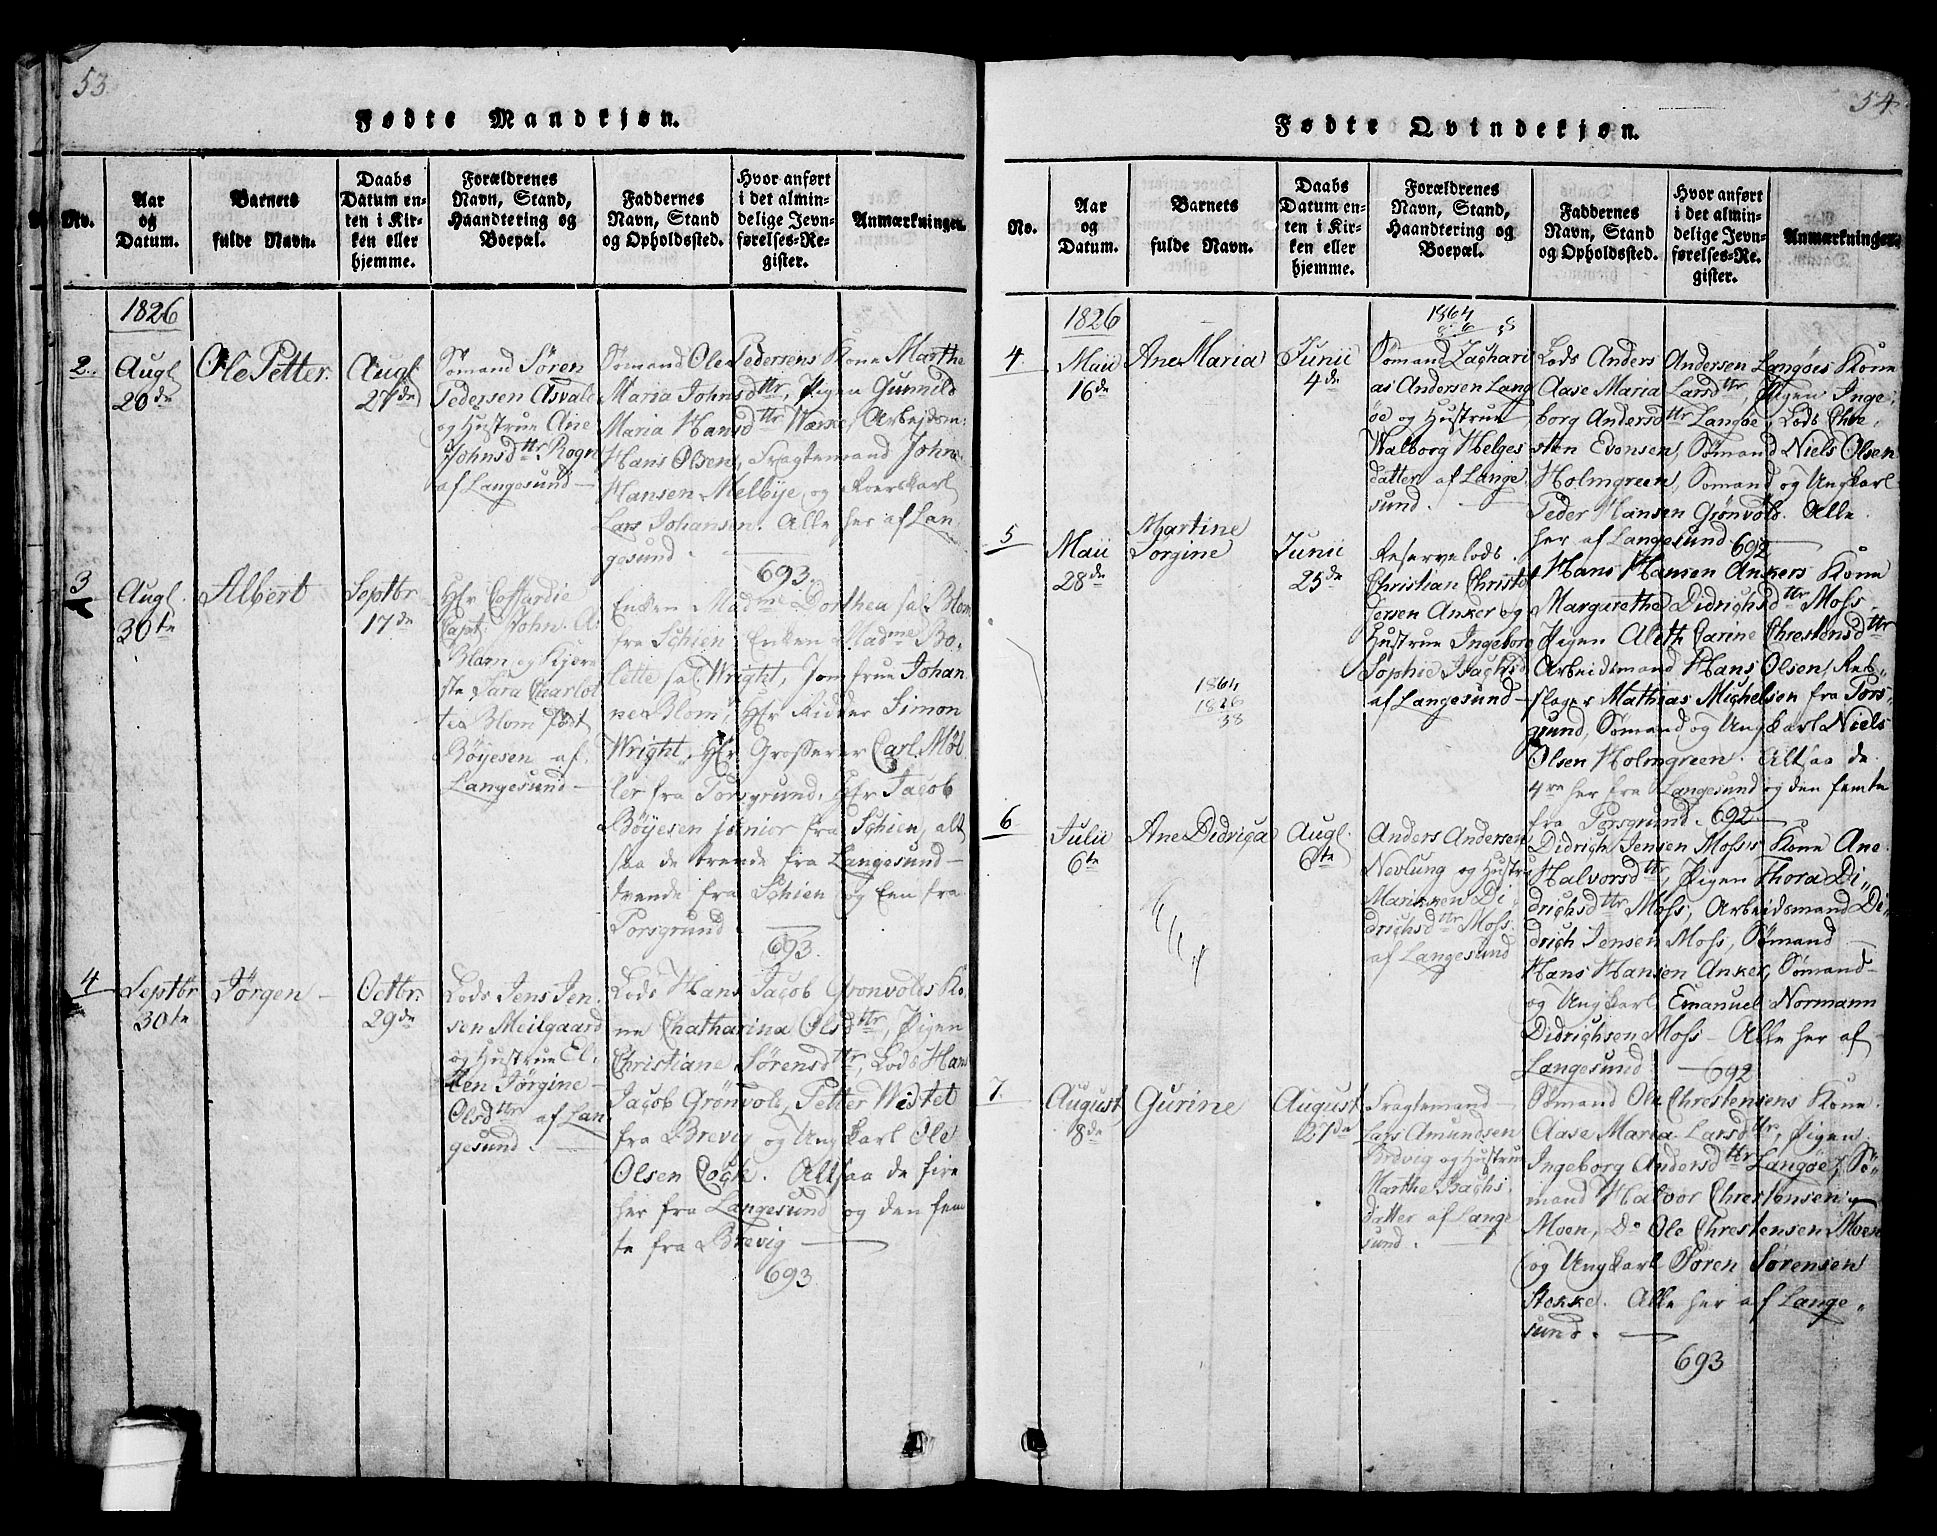 53.
Fødte Mandkjøn.
No.
Aar
og
Datum.
Barnets
fulde Navn.
Daabs
Datum en-
ten i Kir-
ken eller
hjemme.
Forældrenes
Navn, Stand,
Haandtering og
Boepæl.
Faddernes
Navn, Stand
og Opholdssted.
Hvor anført
i det almin-
delige Jevn-
førelses-Re-
gister.
Anmærkninger.
1826
2.
Augl
20de
Ole Petter.
Augl
27de
Sømand Søren
Pedersen Asvald
og Hustrue Ane
Johnsdttr Rogn
af Langesund
Sømand Ole Pedersens Kone Marthe
Maria Johnsdttr, Pigen Gunnild
Maria Hansdttr Werke, Arbeidsm.
Hans Olsen, Fragtemand John
Hansen Melbye, og Roerskarl
Lars Johansen. Alle her af Lan
gesund.
693.
3
Augl.
30te
Albert
Septbr
17de
Hr Coffardie
Capt. John A.
Blom og Kjære
ste Sara Charlot
te Blom født
Böyesen af
Langesund
Enken Madme Dorthea sal. Blom
fra Schien Enken Madme Bo-
lette sal. Wright, Jomfrue Johan
ne Blom, Hr Ridder Simon
Wright, Hr Grosserer Carl Møl
ler fra Porsgrund, Hr Jacob
Böyesen junior fra Schien, alt
saa de trende fra Langesund
trende fra Schien og Een fra
Porsgrund
693.
4
Septbr
30te
Jørgen
Octbr.
29de
Lods Jens Jen-
sen Meilgaard
og Hustrue El-
len Jørgine
Olsdttr af Lan
gesund.
Lods Hans Jacob Gronvolds Ko
ne Chatharina Olsdttr, Pigen
Christiane Sørensdttr, Lods Hans
Jacob Grönvold, Petter Wistet
fra Brevig og Ungkarl Ole
Olsen Cock. Altsaa de fire
her fra Langesund og den fem
te fra Brevig
693
54.
Fødte Qvindekjøn.
No.
Aar
og
Datum.
Barnets
fulde Navn.
Daabs
Datum en-
ten i Kir-
ken eller
hjemme.
Forældrenes
Navn, Stand,
Haandtering og
Boepæl.
Faddernes
Navn, Stand
og Opholdssted.
Hvor anført
i det almin-
delige Jevn-
førelses-Re-
gister.
Anmærkninger.
1826
1864
4
Maii
16de
Ane Maria
Junii
4de
Sømand Zachari
as Andersen Lang
öe og Hustrue
Walborg Helges
datter af Lange
sund.
Lods Anders Andersen Langöes Kone
Aase Maria Larsdttr, Pigen Inge
borg Andersdttr Langöe, Lods Chre
sten Evensen, Sømand Niels Olsen
Holmgreen, Sømand og Ungkarl
Peder Hansen Grönvold. Alle
her af Langesund 692
5
Maii
28de
Martine
Jørgine
Junii
25de
Reservelods
Christian Christof
fersen Anker og
Hustrue Ingeborg
Sophie Isachsd
af Langesund
Hans Hansen Ankers Kone
Margarethe Didrichsdttr Moss
Pigen Aleth Carine Chrestensdttr
Arbeidsmand Hans Olsen, Reb-
slager Mathias Michelsen fra Pors-
grund, Sømand og Ungkarl Niels
Olsen Holmgreen. Altsaa de
4re her fra Langesund og den femte
fra Porsgrund. 692
1864
1826
38
6
Julii
6te
Ane Didrica
Augl.
6te
Anders Andersen
Nevlung og Hustru
Marikken Di
drichsdttr Moss
af Langesund
Didrich Jensen Moss's Kone Ane
Halvorsdttr, Pigen Thora Di-
drichsdttr Moss, Arbeidsmand Di
drich Jensen Moss, Sømand
Hans Hansen Anker, Sømand
og Ungkarl Emanuel Normann
Didrichsen Moss. Alle her af
Langesund 692
7.
August
8de
Gurine
August
27de
Fragtemand
Lars Amundsen
Brevig og Hustrue
Marthe Isachs
datter af Lange
sund.
Sømand Ole Chrestensens Kone
Aase Maria Larsdttr, Pigen
Ingeborg Andersdttr Langöe, Sö-
mand Halvor Chrestensen
Moen, Do Ole Chrestensen Moen
og Ungkarl Søren Sørensen
Stokke. Alle her af Lange-
sund.
693